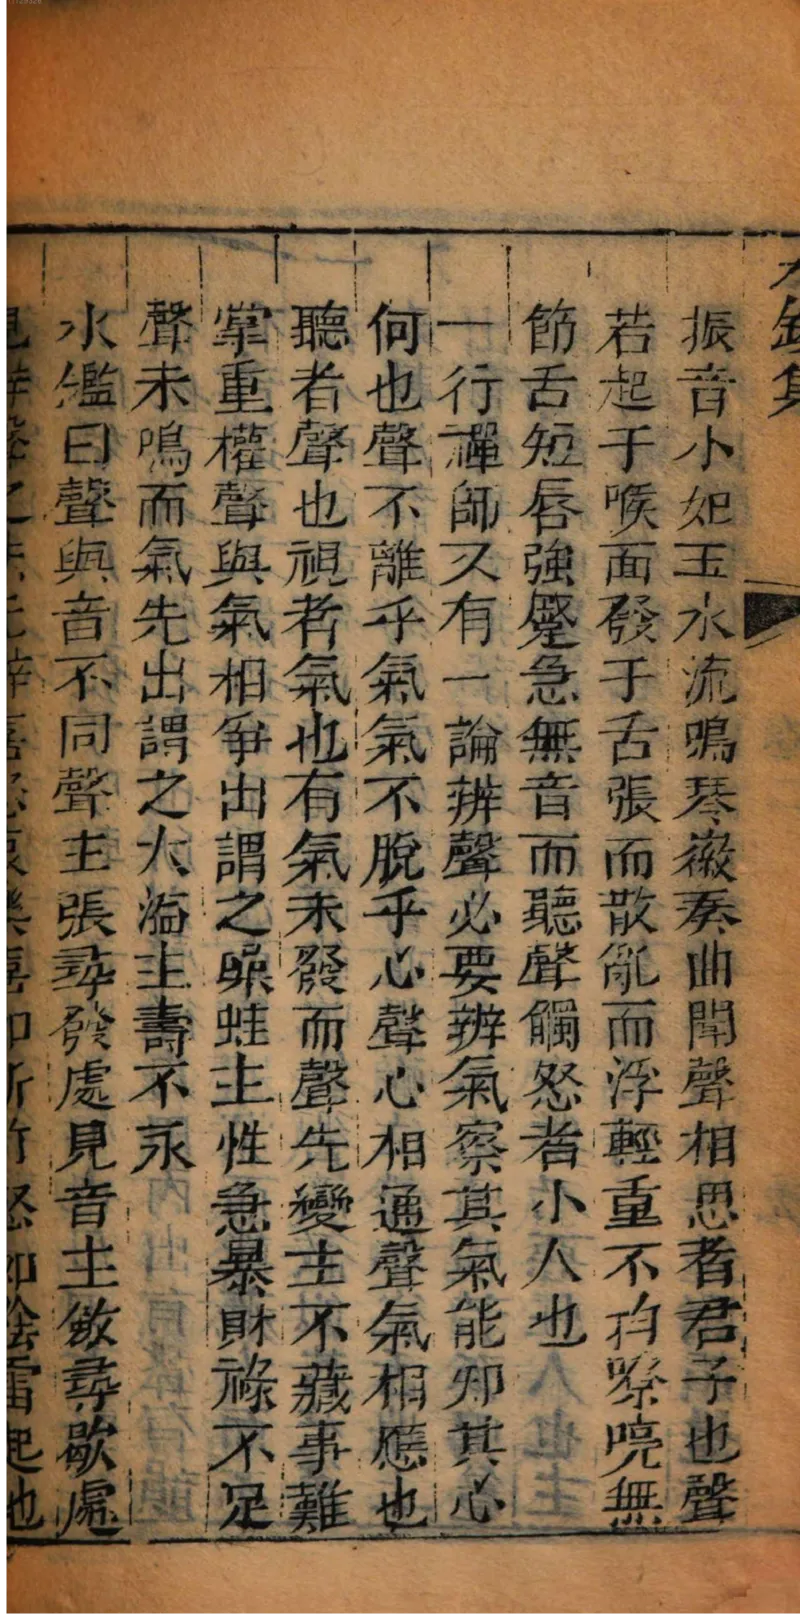 振音小如玉水流鳴琴徽奏曲聞聲相思者君子也聲
若起于喉面發于舌張而散亂而浮輕重不均嘹喨無
節舌短唇強蹙急無音而聽聲觸怒者小人也
一行禪師又有一論辨聲必要辨氣察其氣能知其心
何也聲不離乎氣氣不脫乎心聲心相通聲氣相應也
聽者聲也視者氣也有氣未發而聲先變主不藏事難
掌重權聲與氣相爭出謂之噪蛙主性急暴財祿不足
聲未鳴而氣先出謂之大漏主壽不永
水鑑曰聲與音不同聲主張尋發處見音主斂尋歇處